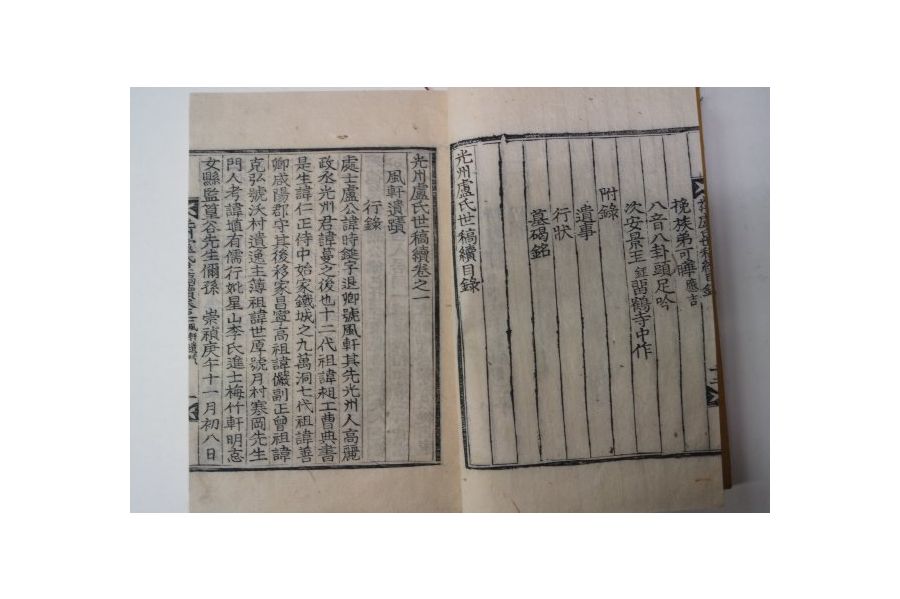 挽族弟可曄應吉
八音八卦頭足吟
次安景玉鈺習鶴寺中作
附錄
遺事
行狀
墓碣銘
光州盧氏世稿續目錄
光州盧氏世稿續卷之一
風軒遺蹟
行錄
處士盧公諱時鍵字退卿號風軒其先光州人高麗
政丞光州君諱蔓之後也十二代祖諱昶工曹典書
是生諱仁正侍中始家鐵城之九萬洞七代祖諱善
卿咸陽郡守其後移家昌寧高祖諱儼副正曾祖諱
克弘號沃村遺逸主簿祖諱世厚號月村寒岡先生
門人考諱塡有儒行妣星山李氏進士梅竹軒明怘
女縣監篁谷先生偁孫 崇禎庚午十一月初八日